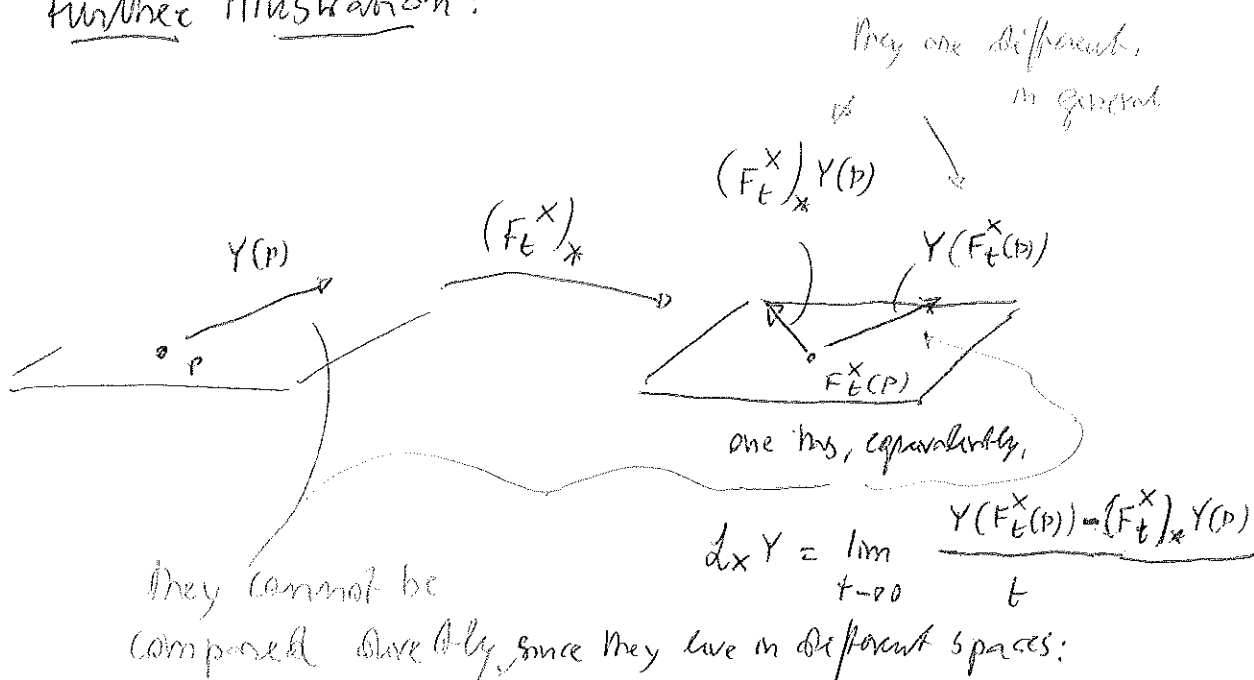 Further illustration:
They are different,
in general
(F_t^X)_* Y(p)
Y(p)
(F_t^X)_*
Y(F_t^X(p))
p
F_t^X(p)
one has, equivalently,
ℒ_X Y = lim_{t→0} \frac{Y(F_t^X(p)) - (F_t^X)_* Y(p)}{t}
They cannot be
compared directly, since they live in different spaces: